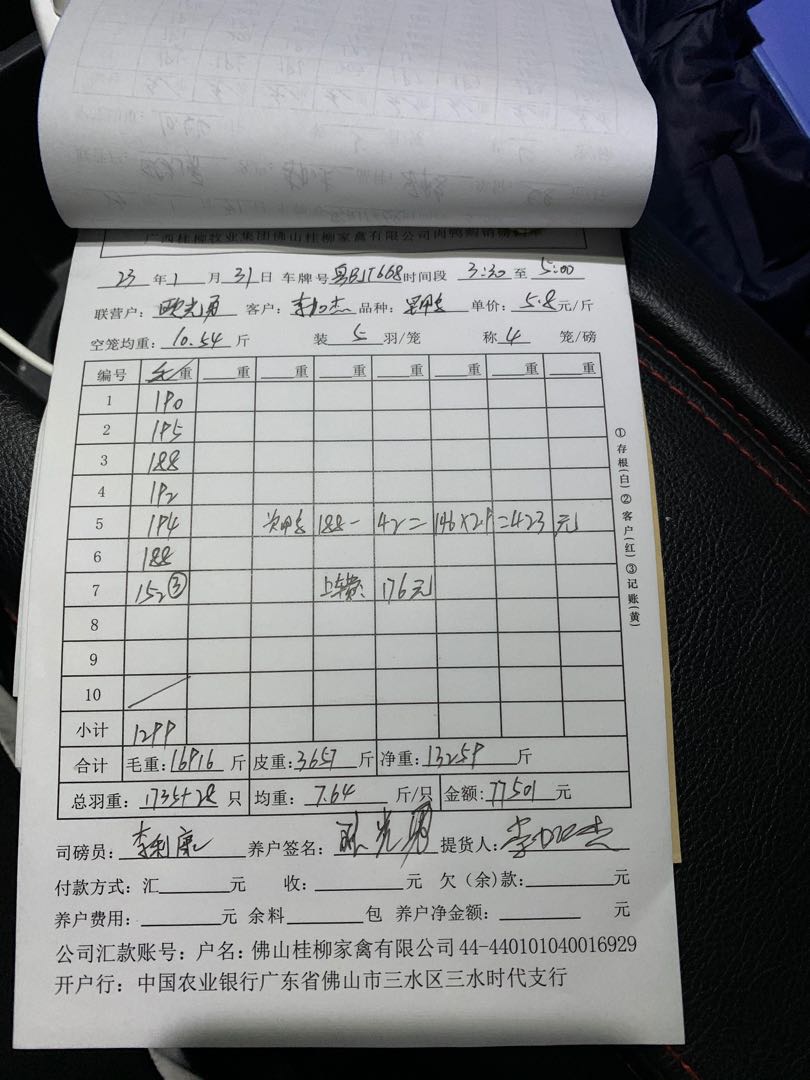 广西桂柳牧业集团佛山桂柳家禽有限公司肉鸭购销
23 年 1 月 31 日 车牌号 粤BJT668 时间段 3:30 至 5:00
联营户: 欧光勇 客户: 李加杰 品种: 单价: 5.8 元/斤
空笼均重: 10.54 斤 装 5 羽/笼 称 4 笼/磅
编号 毛重 重 重 重 重 重 重 重
1 190
2 195
3 188
4 192
5 194 188- 42= 146×2.9 =423 元
6 188
7 152③ 上车费: 176元
8
9
10
小计 1299
合计 毛重: 16916 斤 皮重: 3657 斤 净重: 13259 斤
总羽重: 1735+28 只 均重: 7.64 斤/只 金额: 77501 元
司磅员: 李利康 养户签名: 欧光勇 提货人: 李加杰
付款方式: 汇 元 收: 元 欠(余)款: 元
养户费用: 元 余料 包 养户净金额: 元
公司汇款账号: 户名: 佛山桂柳家禽有限公司 44-440101040016929
开户行: 中国农业银行广东省佛山市三水区三水时代支行
①存根(白)②客户(红)③记账(黄)